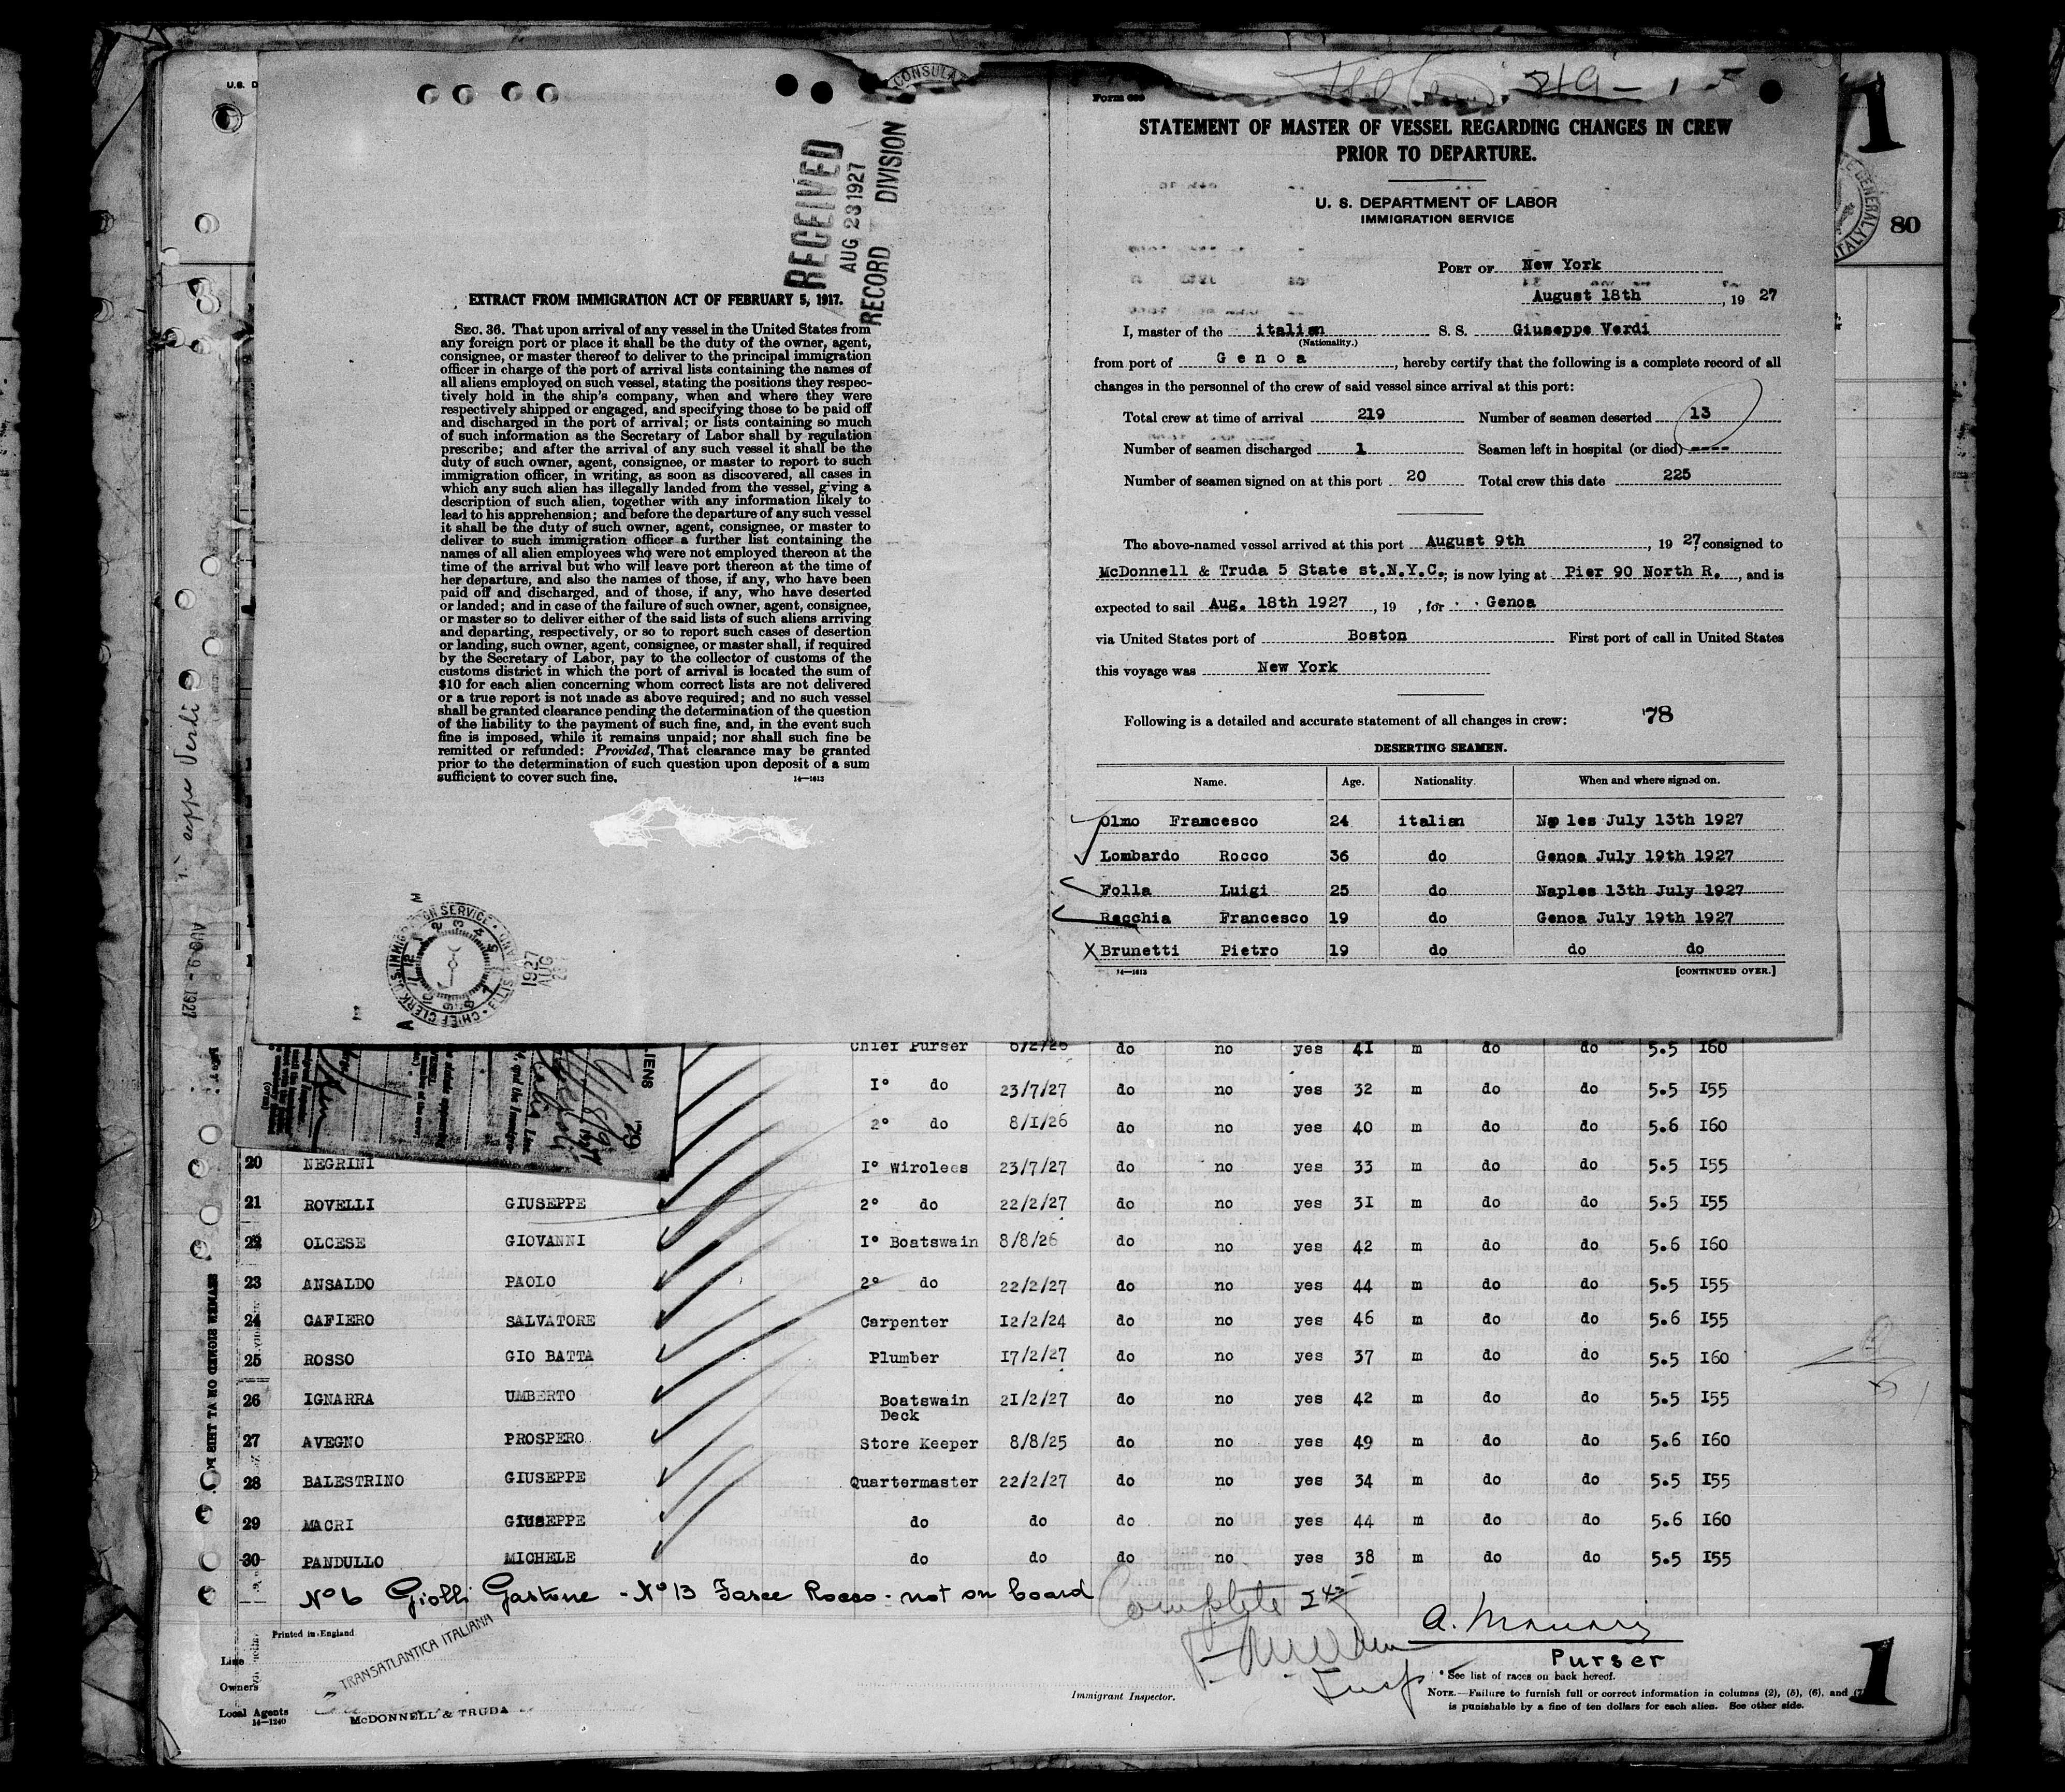 U.S. D
CONSULA
RECEIVED
AUG 23 1927
RECORD DIVISION
EXTRACT FROM IMMIGRATION ACT OF FEBRUARY 5, 1917.
SEC. 36. That upon arrival of any vessel in the United States from
any foreign port or place it shall be the duty of the owner, agent,
consignee, or master thereof to deliver to the principal immigration
officer in charge of the port of arrival lists containing the names of
all aliens employed on such vessel, stating the positions they respec-
tively hold in the ship's company, when and where they were
respectively shipped or engaged, and specifying those to be paid off
and discharged in the port of arrival; or lists containing so much
of such information as the Secretary of Labor shall by regulation
prescribe; and after the arrival of any such vessel it shall be the
duty of such owner, agent, consignee, or master to report to such
immigration officer, in writing, as soon as discovered, all cases in
which any such alien has illegally landed from the vessel, giving a
description of such alien, together with any information likely to
lead to his apprehension; and before the departure of any such vessel
it shall be the duty of such owner, agent, consignee, or master to
deliver to such immigration officer a further list containing the
names of all alien employees who were not employed thereon at the
time of the arrival but who will leave port thereon at the time of
her departure, and also the names of those, if any, who have been
paid off and discharged, and of those, if any, who have deserted
or landed; and in case of the failure of such owner, agent, consignee,
or master so to deliver either of the said lists of such aliens arriving
and departing, respectively, or so to report such cases of desertion
or landing, such owner, agent, consignee, or master shall, if required
by the Secretary of Labor, pay to the collector of customs of the
customs district in which the port of arrival is located the sum of
$10 for each alien concerning whom correct lists are not delivered
or a true report is not made as above required; and no such vessel
shall be granted clearance pending the determination of the question
of the liability to the payment of such fine, and, in the event such
fine is imposed, while it remains unpaid; nor shall such fine be
remitted or refunded: Provided, That clearance may be granted
prior to the determination of such question upon deposit of a sum
sufficient to cover such fine. 14—1613
CHIEF CLERK U.S. IMMIGRATION SERVICE ELLIS ISLAND
1927
AUG
Form 689
STATEMENT OF MASTER OF VESSEL REGARDING CHANGES IN CREW
PRIOR TO DEPARTURE.
U. S. DEPARTMENT OF LABOR
IMMIGRATION SERVICE
PORT OF New York
August 18th, 19 27
I, master of the italian S. S. Giuseppe Verdi
(Nationality.)
from port of Genoa, hereby certify that the following is a complete record of all
changes in the personnel of the crew of said vessel since arrival at this port:
Total crew at time of arrival 219 Number of seamen deserted 13
Number of seamen discharged 1 Seamen left in hospital (or died) ----
Number of seamen signed on at this port 20 Total crew this date 225
The above-named vessel arrived at this port August 9th, 19 27, consigned to
McDonnell & Truda 5 State st.N.Y.C.; is now lying at Pier 90 North R., and is
expected to sail Aug. 18th 1927, 19 , for Genoa
via United States port of Boston First port of call in United States
this voyage was New York
Following is a detailed and accurate statement of all changes in crew: 78
DESERTING SEAMEN.
Name. Age. Nationality. When and where signed on.
Olmo Francesco 24 italian Naples July 13th 1927
Lombardo Rocco 36 do Genoa July 19th 1927
Folla Luigi 25 do Naples 13th July 1927
Racchia Francesco 19 do Genoa July 19th 1927
X Brunetti Pietro 19 do do do
14—1613 [CONTINUED OVER.]
1
80
GENERAL
ITALY
AUG - 9 1927
LIENS
Chief Purser do no yes 41 m do do 5.5 I60
I° do 23/7/27 do no yes 32 m do do 5.5 I55
2° do 8/I/26 do no yes 40 m do do 5.6 I60
20 NEGRINI I° Wirolees 23/7/27 do no yes 33 m do do 5.5 I55
21 ROVELLI GIUSEPPE 2° do 22/2/27 do no yes 31 m do do 5.5 I55
22 OLCESE GIOVANNI I° Boatswain 8/8/26 do no yes 42 m do do 5.6 I60
23 ANSALDO PAOLO 2° do 22/2/27 do no yes 44 m do do 5.5 I55
24 CAFIERO SALVATORE Carpenter I2/2/24 do no yes 46 m do do 5.6 I55
25 ROSSO GIO BATTA Plumber I7/2/27 do no yes 37 m do do 5.5 I60
26 IGNARRA UMBERTO Boatswain Deck 2I/2/27 do no yes 42 m do do 5.5 I55
27 AVEGNO PROSPERO Store Keeper 8/8/25 do no yes 49 m do do 5.6 I60
28 BALESTRINO GIUSEPPE Quartermaster 22/2/27 do no yes 34 m do do 5.5 I55
29 MACRI GIUSEPPE do do do no yes 44 m do do 5.6 I60
30 PANDULLO MICHELE do do do no yes 38 m do do 5.5 I55
N° 6 Giolli Gastone - N° 13 Fasce Rocco - not on board
Complete
Printed in England
Line
TRANSATLANTICA ITALIANA
Owners
Local Agents McDONNELL & TRUDA
14—1240
Immigrant Inspector.
Insp
Purser
* See list of races on back hereof.
NOTE.—Failure to furnish full or correct information in columns (2), (5), (6), and (7)
is punishable by a fine of ten dollars for each alien. See other side.
1